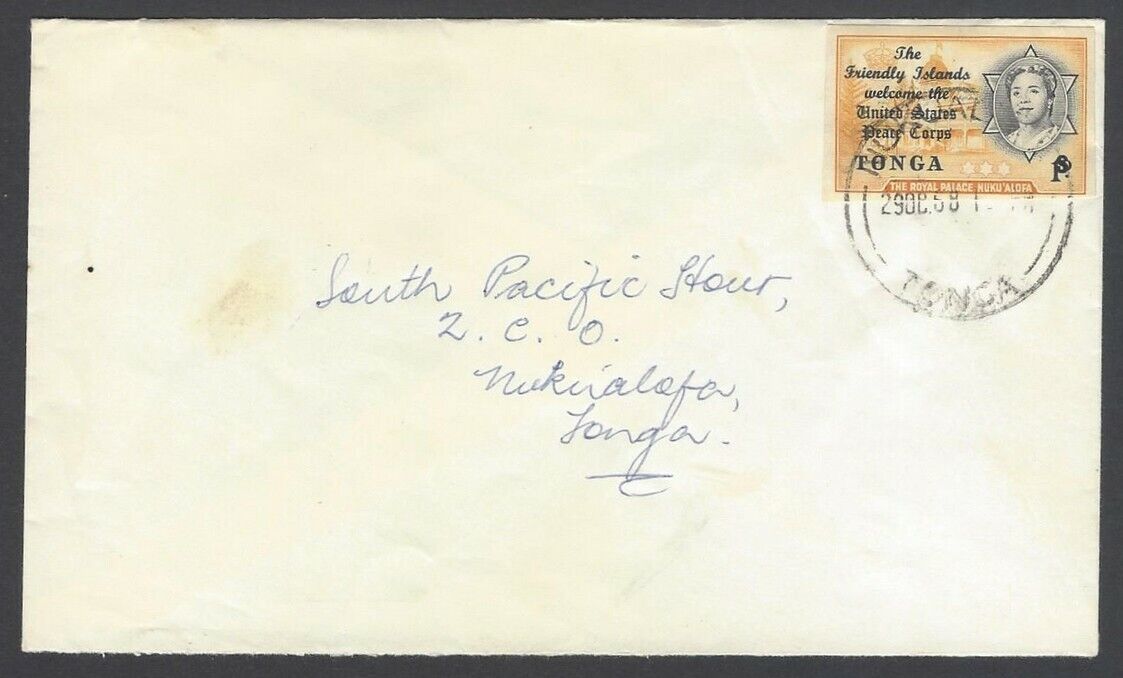 The
Friendly Islands
welcome the
United States
Peace Corps
TONGA
THE ROYAL PALACE NUKU'ALOFA
TONGA
South Pacific Hour,
Z. C. O.
Nuku'alofa,
Tonga.